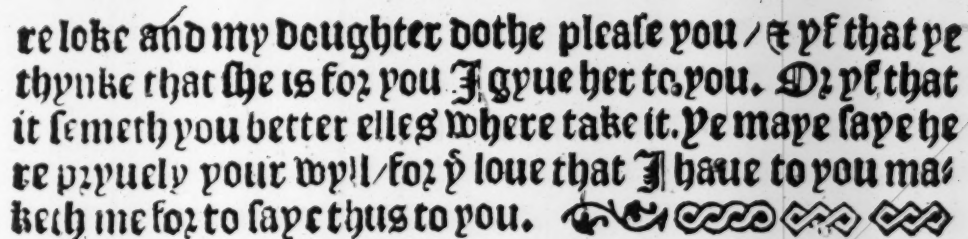 re loke and my doughter dothe please you / & yf that ye
thynke that she is for you I gyue her to you. Or yf that
it semeth you better elles where take it. Ye maye saye he
re pryuely your wyll / for þͤ loue that I haue to you ma⸗
keth me for to saye thus to you.